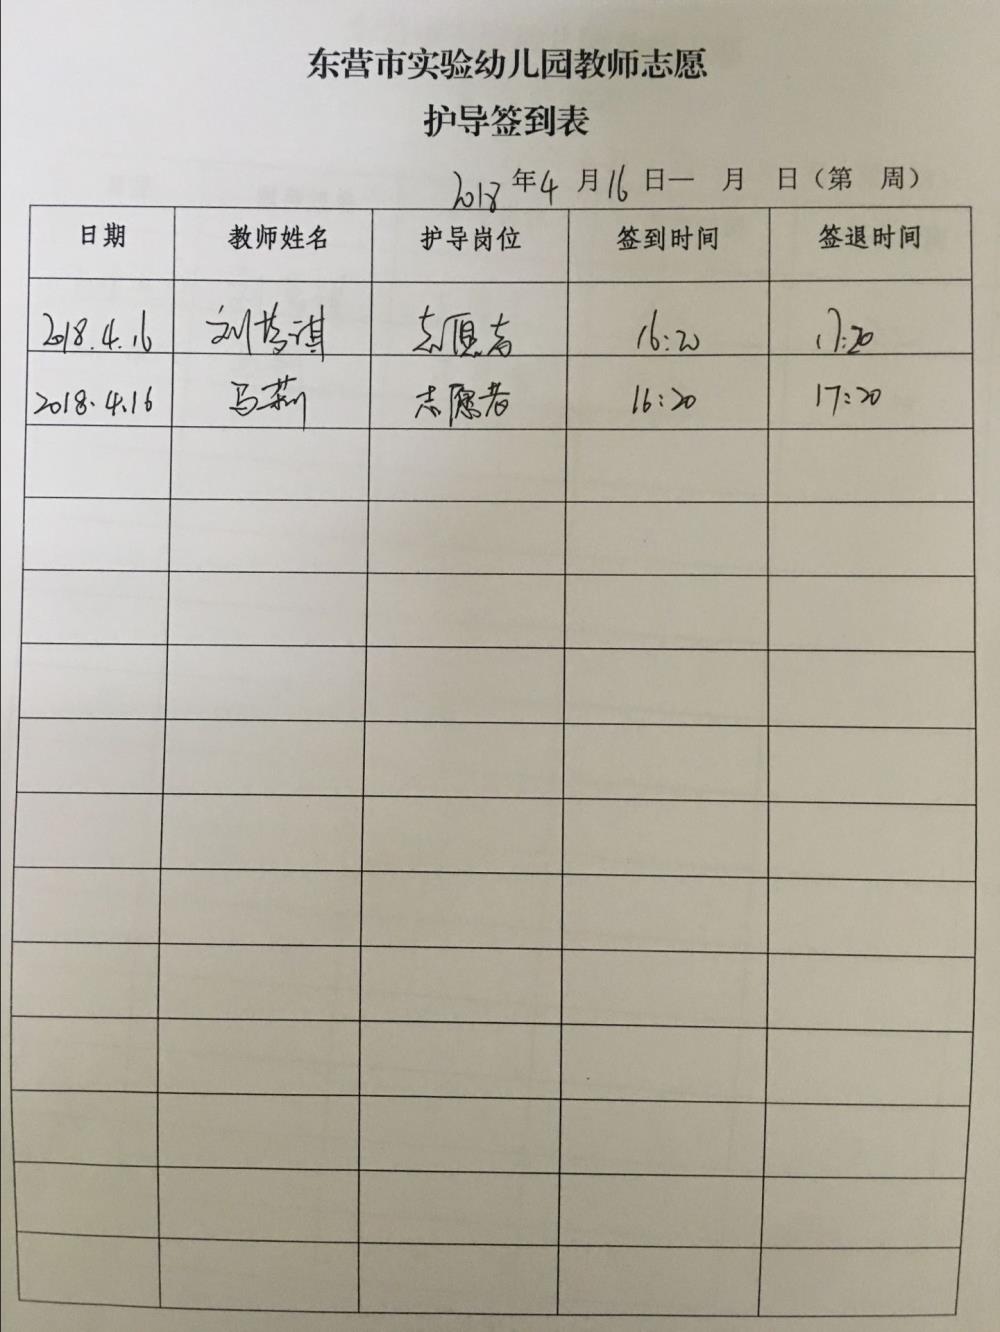 东营市实验幼儿园教师志愿
护导签到表
2018年4月16日一 月 日（第 周）
日期 教师姓名 护导岗位 签到时间 签退时间
2018.4.16 刘梦琪 志愿者 16:20 17:20
2018.4.16 马莉 志愿者 16:20 17:20